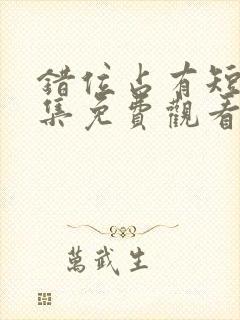 錯位占有短
集免費觀看
萬武生